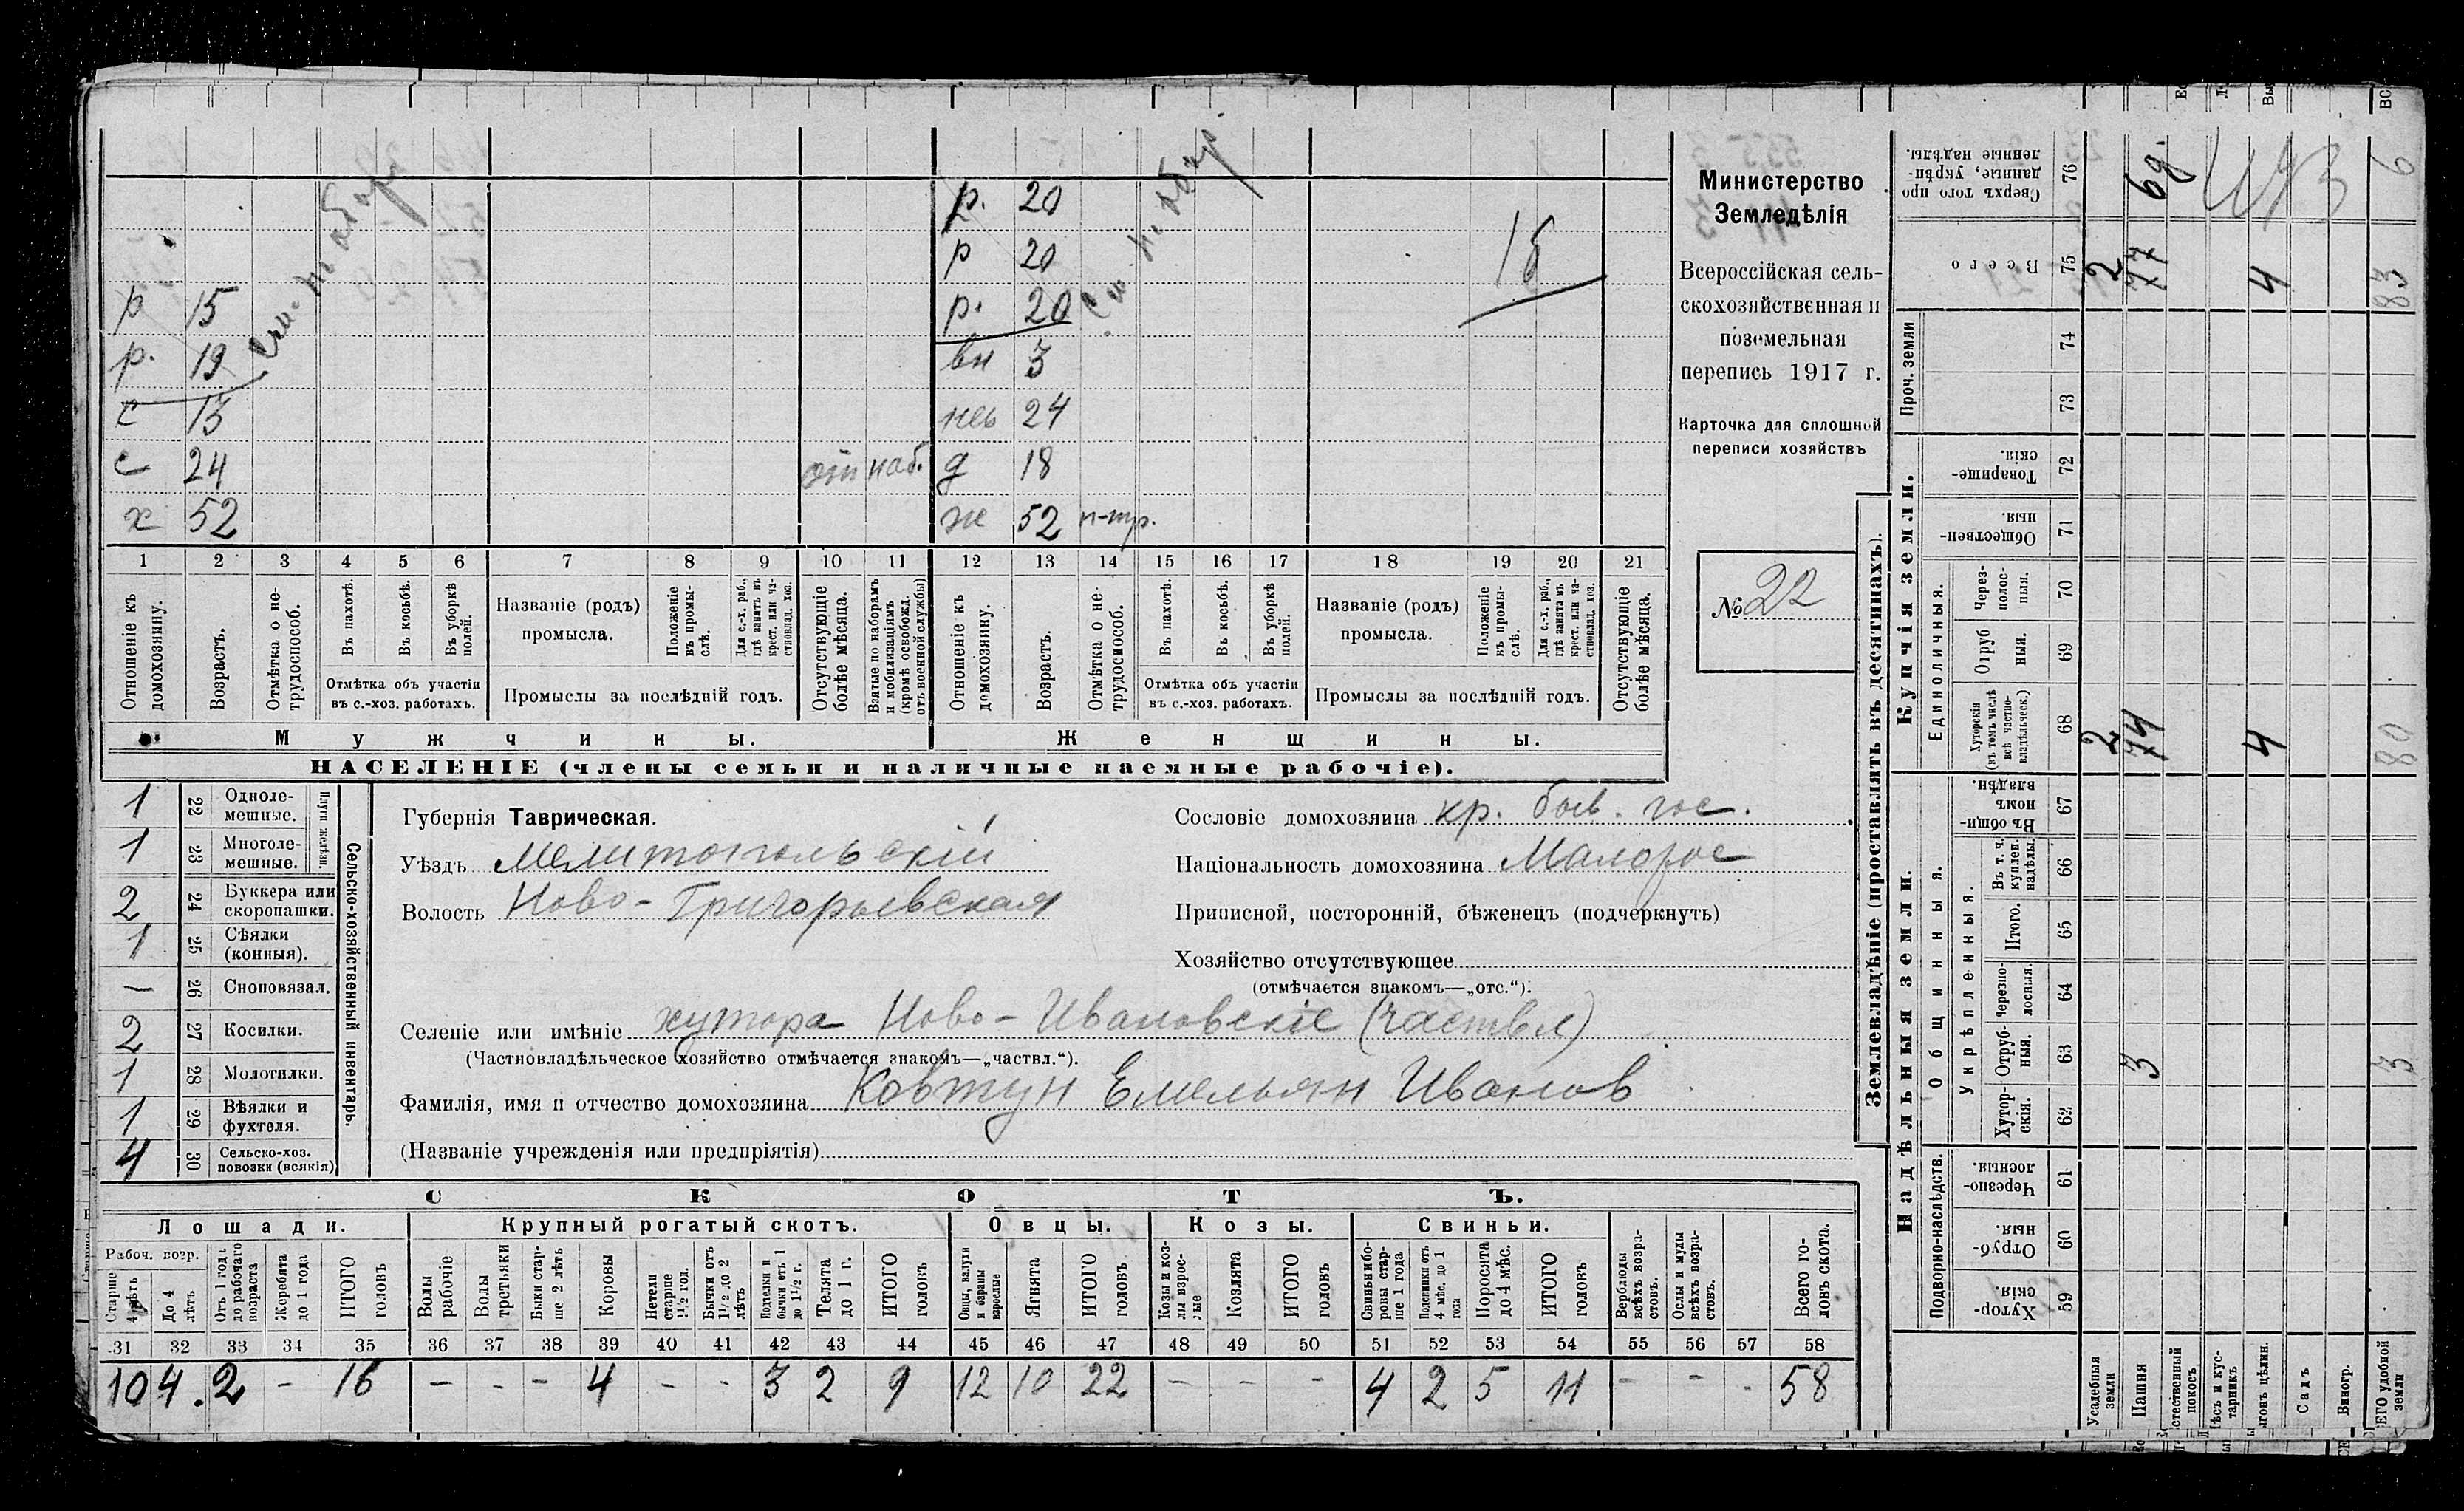 р. 20
р 20
р 15 р. 20
р. 19 вн 3
с 13 нев 24
с 24 наб. д 18
х 52 ж 52 н-тр.
18
1 2 3 4 5 6 7 8 9 10 11 12 13 14 15 16 17 18 19 20 21
Отношеніе къ домохозяину.
Возрастъ.
Отмѣтка о нетрудоспособ.
Въ пахотѣ.
Въ косьбѣ.
Въ уборкѣ полей.
Отмѣтка объ участіи въ с.-хоз. работахъ.
Названіе (родъ) промысла.
Положеніе въ промыслѣ.
Для с.-х. раб., гдѣ занятъ въ крест. или частновлад. хоз.
Промыслы за послѣдній годъ.
Отсутствующіе болѣе мѣсяца.
Взятые по наборамъ и мобилизаціямъ (кромѣ освобожд. отъ военной службы)
Отношеніе къ домохозяину.
Возрастъ.
Отмѣтка о нетрудоспособ.
Въ пахотѣ.
Въ косьбѣ.
Въ уборкѣ полей.
Отмѣтка объ участіи въ с.-хоз. работахъ.
Названіе (родъ) промысла.
Положеніе въ промыслѣ.
Для с.-х. раб., гдѣ занята въ крест. или частновлад. хоз.
Промыслы за послѣдній годъ.
Отсутствующіе болѣе мѣсяца.
Мужчины. Женщины.
НАСЕЛЕНІЕ (члены семьи и наличные наемные рабочіе).
Министерство
Земледѣлія
Всероссійская сель-
скохозяйственная и
поземельная
перепись 1917 г.
Карточка для сплошной
переписи хозяйствъ
№ 22
Сельско-хозяйственный инвентарь.
Плуги желѣзн.
1 22 Одноле-мешные.
1 23 Многоле-мешные.
2 24 Буккера или скоропашки.
1 25 Сѣялки (конныя).
— 26 Сноповязал.
2 27 Косилки.
1 28 Молотилки.
1 29 Вѣялки и фухтеля.
4 30 Сельско-хоз. повозки (всякія)
Губернія Таврическая.
Уѣздъ Мелитопольскій
Волость Ново-Григорьевская
Сословіе домохозяина кр. быв. гос.
Національность домохозяина Малорос
Приписной, посторонній, бѣженецъ (подчеркнуть)
Хозяйство отсутствующее
(отмѣчается знакомъ—„отс.“).
Селеніе или имѣніе хутора Ново-Ивановскіе (частвл)
(Частновладѣльческое хозяйство отмѣчается знакомъ—„частвл.“).
Фамилія, имя и отчество домохозяина Ковтун Емельян Иванов
(Названіе учрежденія или предпріятія)
СКОТЪ.
Лошади. Крупный рогатый скотъ. Овцы. Козы. Свиньи.
Рабоч. возр.
Старше 4 лѣтъ
До 4 лѣтъ
Отъ 1 года до рабочаго возраста
Жеребята до 1 года
ИТОГО головъ
Волы рабочіе
Волы третьяки
Быки старше 2 лѣтъ
Коровы
Нетели старше 1½ год.
Бычки отъ 1½ до 2 лѣтъ
Подтелки и бычки отъ 1 до 1½ г.
Телята до 1 г.
ИТОГО головъ
Овцы, валухи и бараны взрослые
Ягнята
ИТОГО головъ
Козы и козлы взрослые
Козлята
ИТОГО головъ
Свиньи и боровы старше 1 года
Подсвинки отъ 4 мѣс. до 1 года
Поросята до 4 мѣс.
ИТОГО головъ
Верблюды всѣхъ возрастовъ.
Ослы и мулы всѣхъ возрастовъ.
Всего головъ скота.
31 32 33 34 35 36 37 38 39 40 41 42 43 44 45 46 47 48 49 50 51 52 53 54 55 56 57 58
10 4. 2 - 16 - - - 4 - - 3 2 9 12 10 22 - - - 4 2 5 11 - - - 58
Землевладѣніе (проставлять въ десятинахъ).
Надѣльныя земли. Купчія земли. Проч. земли
Подворно-наслѣдств.
Общинныя.
Укрѣпленныя.
Единоличныя.
Сверхъ того проданные, укрѣпленные надѣлы. 76 6д. 6
Всего 75 2 77 4 83
74
73
Товарищескія. 72
Общественныя. 71
Черезполосныя. 70
Отрубныя. 69
Хуторскія (въ томъ числѣ всѣ частновладѣльческ.) 68 2 74 4 80
Въ общинномъ владѣн. 67
Въ т. ч. куплен. надѣлы. 66
Итого. 65
Черезполосныя. 64
Отрубныя. 63 3 3
Хуторскія. 62
Черезполосныя. 61
Отрубныя. 60
Хуторскія. 59
Усадебныя земли
Пашня
стественный покосъ
ѣсъ и кустарникъ
ыгонъ цѣлин.
Садъ
Виногр.
ЕГО удобной земли